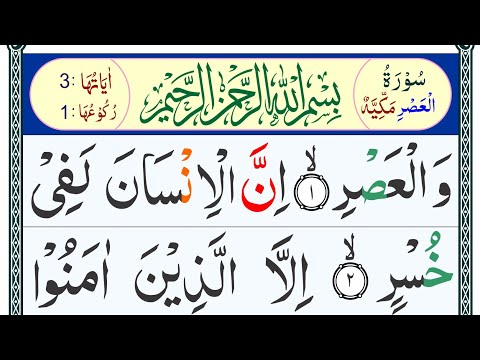 سُوْرَةُ
الْعَصْرِ مَكِّيَّةٌ
بِسْمِ اللّٰهِ الرَّحْمٰنِ الرَّحِيْمِ
اٰيَاتُهَا: 3
رُكُوْعُهَا: 1
وَالْعَصْرِ ۙ﴿۱﴾ اِنَّ الْاِنْسَانَ لَفِيْ
خُسْرٍ ۙ﴿۲﴾ اِلَّا الَّذِيْنَ اٰمَنُوْا